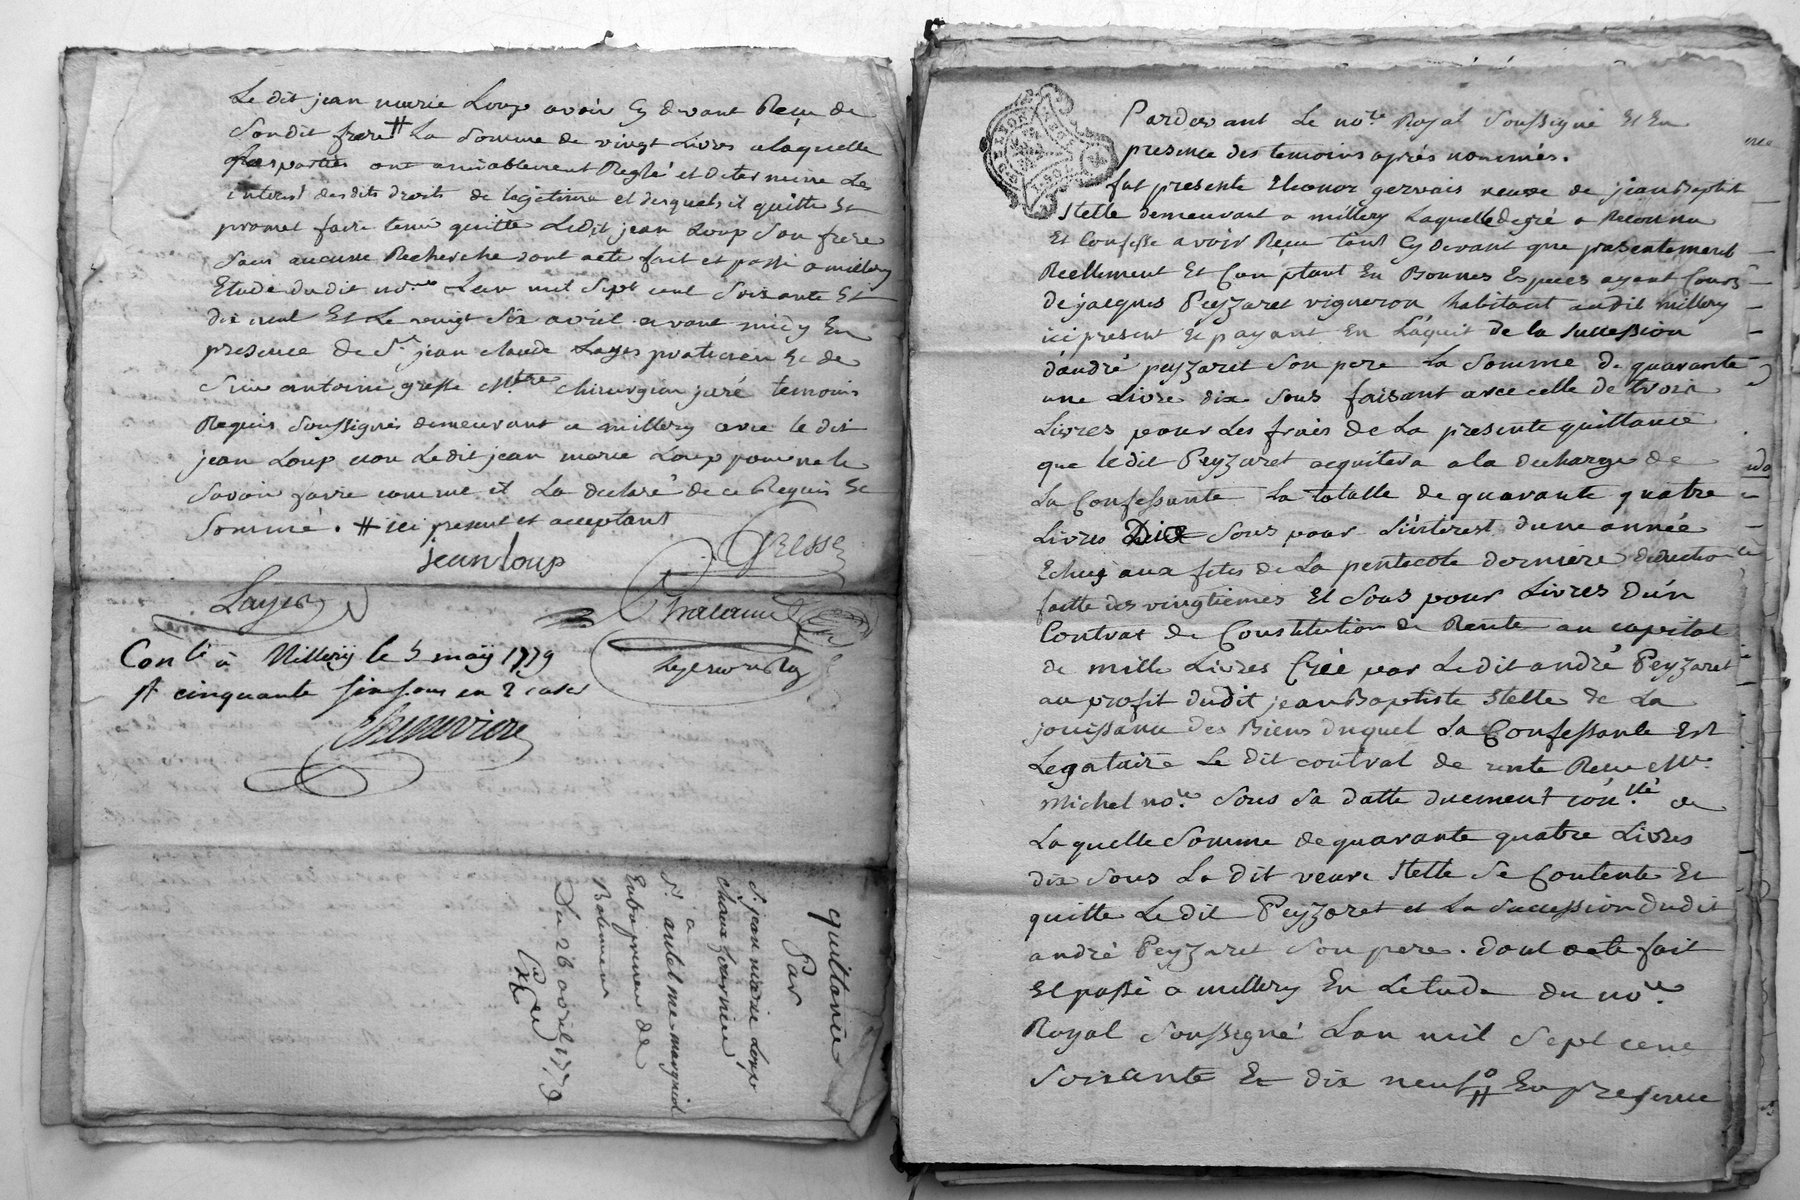 Le dit jean marie Loup avoir cy devant Reçu de
Son dit frere # La Somme de vingt Livres a laquelle
Les parties ont amiablement Reglé et determiné Les
interest des dits droits de legitime et desquels il quitte Et
promet faire tenir quitte Ledit jean Loup Son frere
Sans aucune Recherche dont acte fait et passé a millery
Etude du dit no.re Lan mil Sept cent Soixante Et
dix neuf Et Le vingt Six avril avant midy En
presence de S.r jean claude Layes praticien Et de
Sieur antoine gresse M.tre chirurgien juré temoins
Requis Soussignés demeurant a millery avec le dit
jean Loup non Ledit jean marie Loup pour ne le
Savoir faire comme il La declaré de ce Requis Et
Sommé. # ici present et acceptant
jean loup
Gresse
Layes
Con.lé à Millery le 5 maÿ 1779
R cinquante six sous en 2 cases
quittance
Par
S.r jean marie Loup
à
S.r
Entrepreneur de
Batimens
Du 26 avril 1779
Pardevant Le no.re Royal Soussigné Et En
presence des temoins aprés nommés.
fut presente Eleonor gervais veuve de jean Baptiste
Stelle demeurant a millery Laquelle de gré a Reconnu
Et Confessé avoir Reçu tant Cy devant que presentement
Reellement Et Comptant En Bonnes Especes ayant Cours
de jacques Peyzaret vigneron habitant audit millery
ici present Et payant En L'aquit de la Succession
d'andré peyzaret Son pere La Somme de quarante
une Livre dix Sous faisant avec celle de trois
Livres pour Les frais de La presente quittance
que ledit Peyzaret acquitera a la decharge de
La Confessante La totalle de quarante quatre
Livres Dix Sous pour L'interest d'une année
Echue aux fetes de La pentecote derniere deduction
faitte des vingtiemes Et Sous pour Livres D'un
Contrat de Constitution de Rente au capital
de mille Livres Créé par Le dit andré Peyzaret
au profit dudit jean Baptiste Stelle de La
jouissance des Biens duquel La Confessante Est
Legataire Le dit contrat de rente Reçu M.e
Michel no.re Sous Sa datte duement con.llé de
Laquelle Somme de quarante quatre Livres
dix Sous La dit veuve Stelle Se Contente Et
quitte Le dit Peyzaret et La Succession dudit
andré Peyzaret Son pere. dont acte fait
Et passé a millery En L'etude du no.re
Royal Soussigné Lan mil Sept cent
Soixante Et dix neuf # En presence